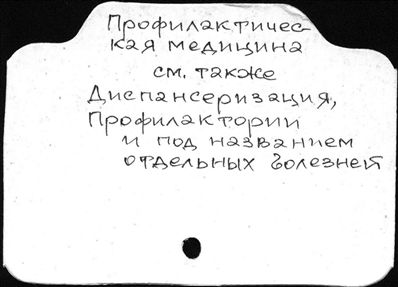 Профилактичес-
кая медицина
см. также
Диспансеризация,
Профилактории
и под названием
отдельных болезней